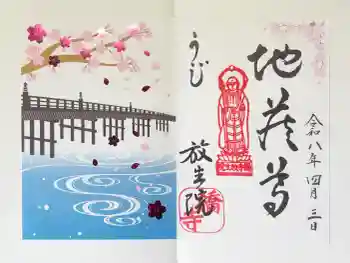 令和八年四月三日
地蔵尊
うじ
放生院
橋寺